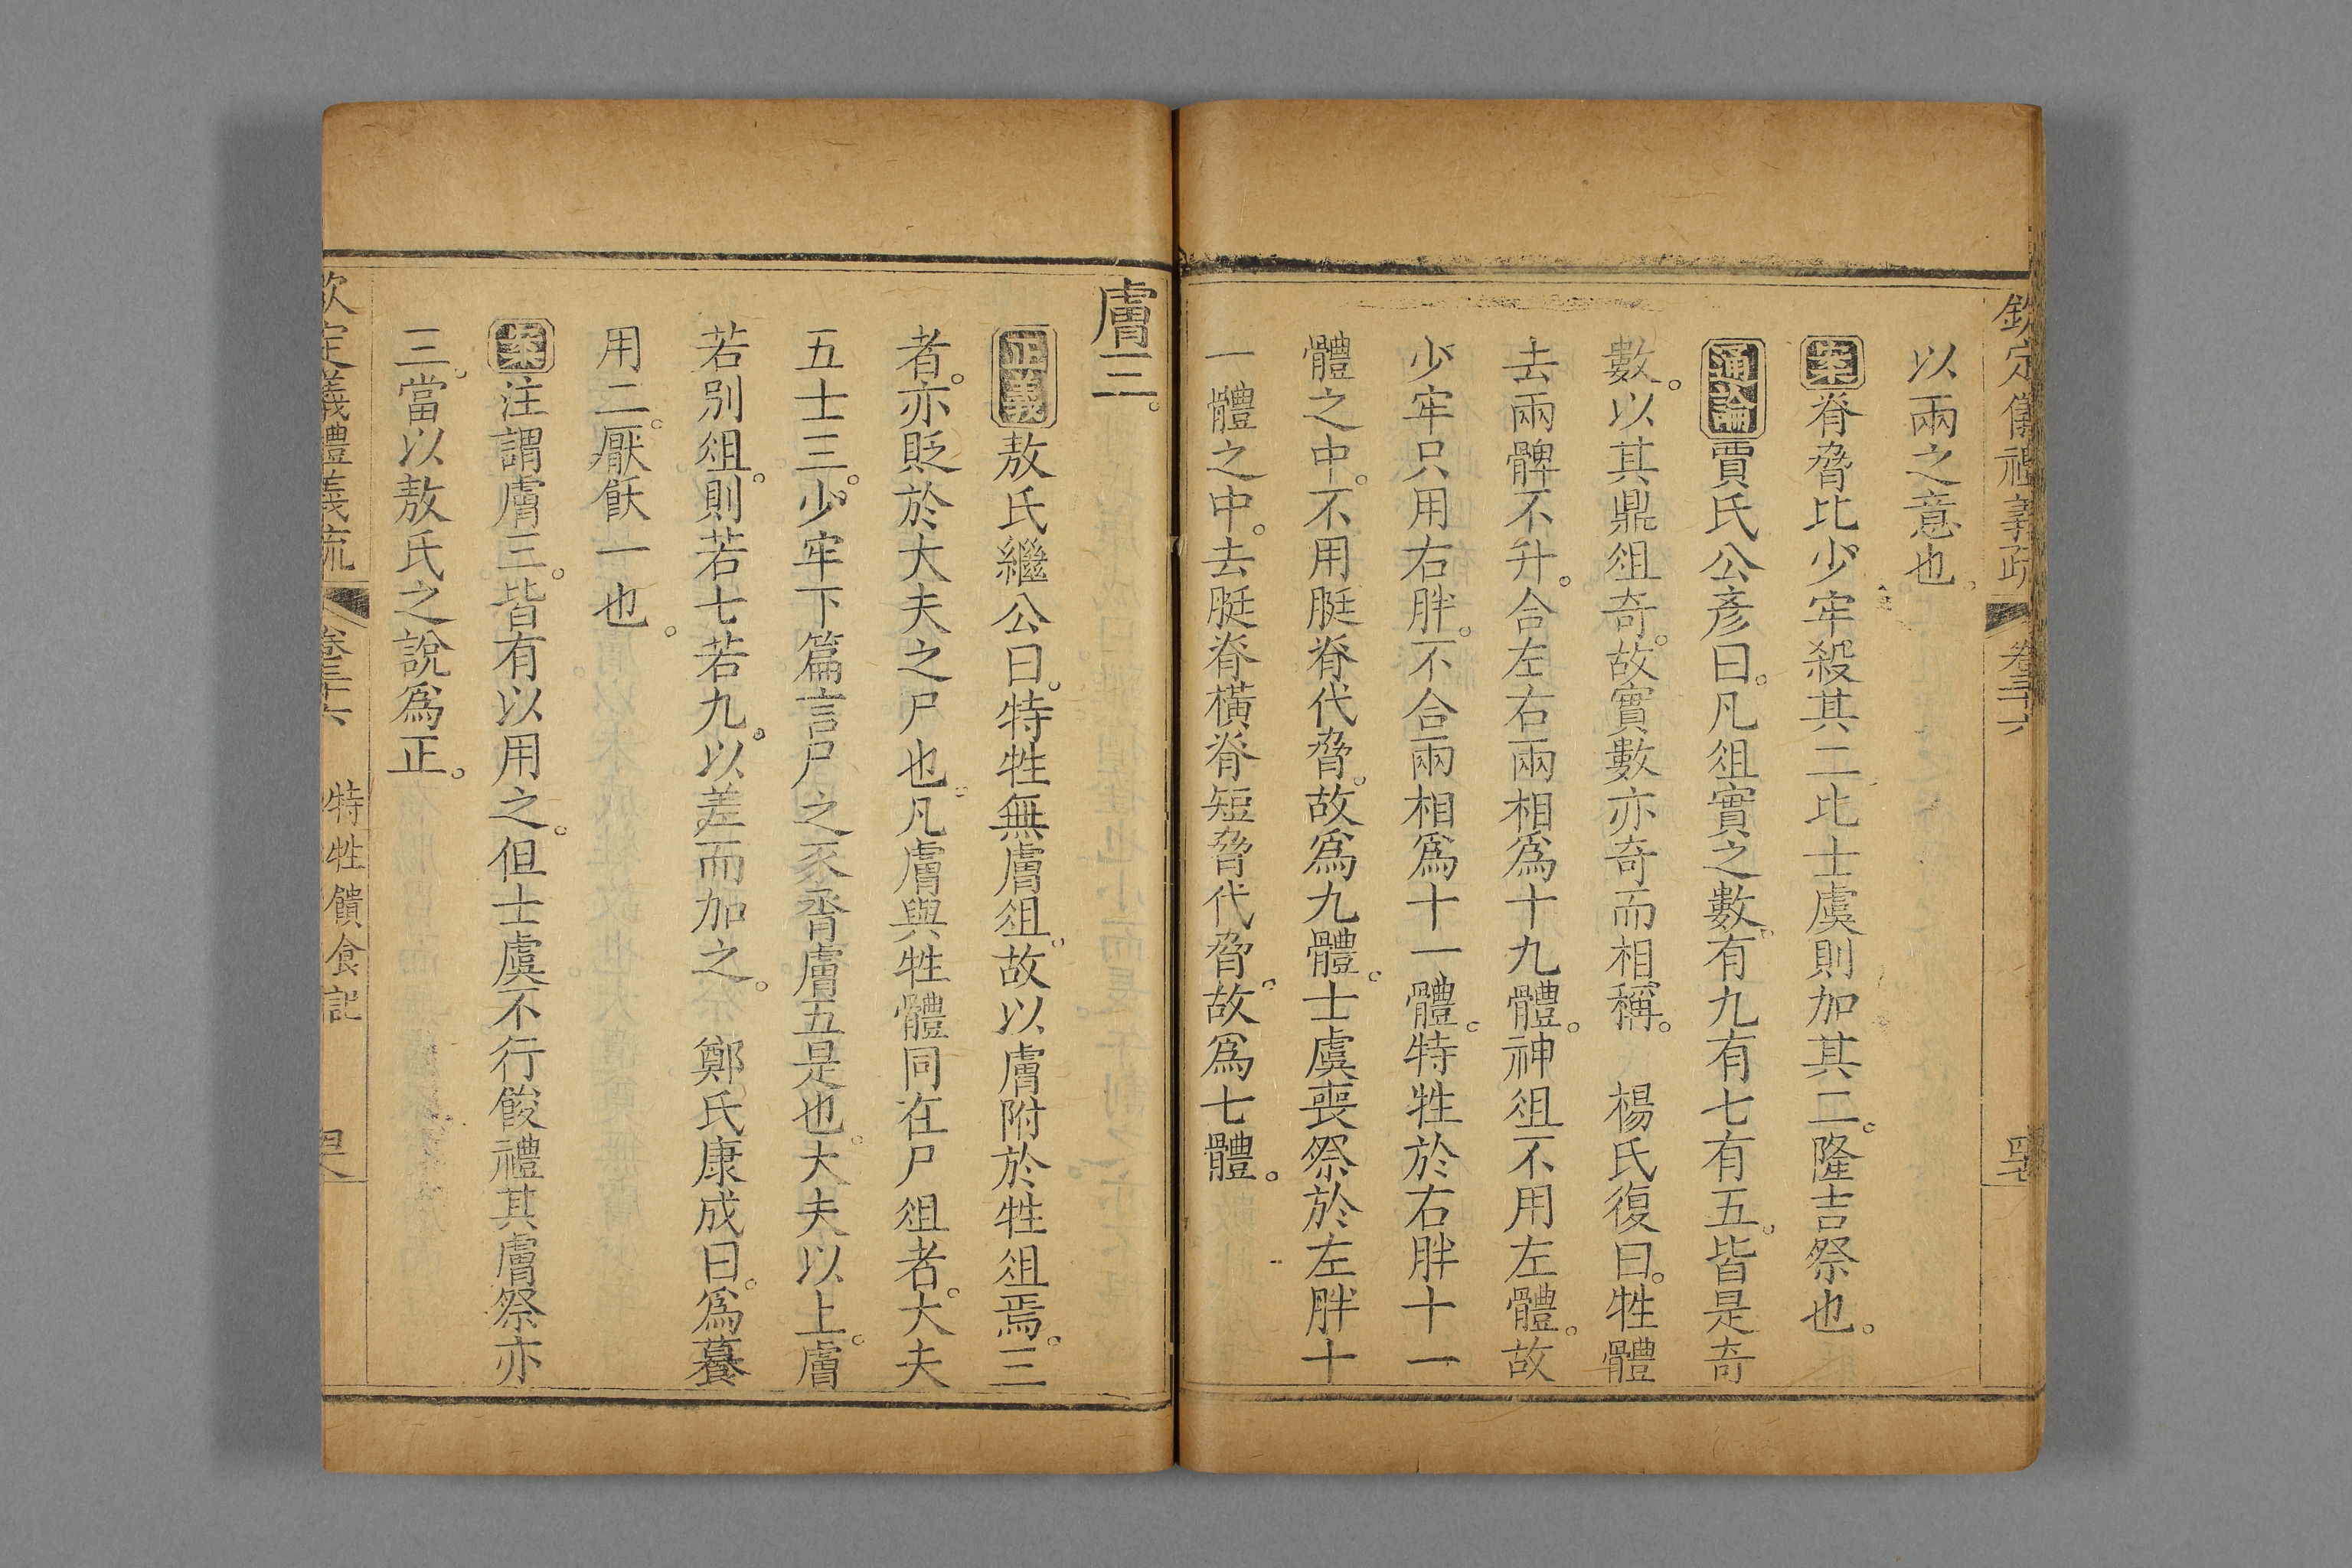 欽定儀禮義疏 卷三十六
以兩之意也。
案脊脅比少牢殺其二比士虞則加其二。隆吉祭也。
通論賈氏公彥曰。凡俎實之數。有九有七有五。皆是奇
數。以其鼎俎奇。故實數亦奇而相稱。 楊氏復曰。牲體
去兩髀不升。合左右兩相為十九體。神俎不用左體。故
少牢只用右胖。不合兩相為十一體。特牲於右胖十一
體之中。不用脡脊代脅。故為九體。士虞喪祭於左胖十
一體之中。去脡脊橫脊短脅代脅。故為七體。
膚三。
正義敖氏繼公曰。特牲無膚俎。故以膚附於牲俎焉。三
者。亦貶於大夫之尸也。凡膚與牲體同在尸俎者。大夫
五士三。少牢下篇言尸之豕脀膚五是也。大夫以上。膚
若別俎。則若七若九。以差而加之。 鄭氏康成曰。為䭕
用二。厭飫一也。
案注謂膚三。皆有以用之。但士虞不行餕禮其膚祭亦
三。當以敖氏之說為正。
欽定儀禮義疏 卷三十六 特牲饋食記